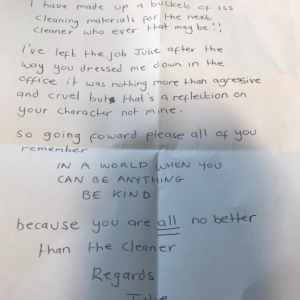 I have made up a bucket of iss
cleaning materials for the next
cleaner who ever that may be!!
I've left the job Julie after the
way you dressed me down in the
office it was nothing more than agressive
and cruel but that's a reflection on
your character not mine.
So going foward please all of you
remember
IN A WORLD WHEN YOU
CAN BE ANYTHING
BE KIND
because you are all no better
than the cleaner
Regards